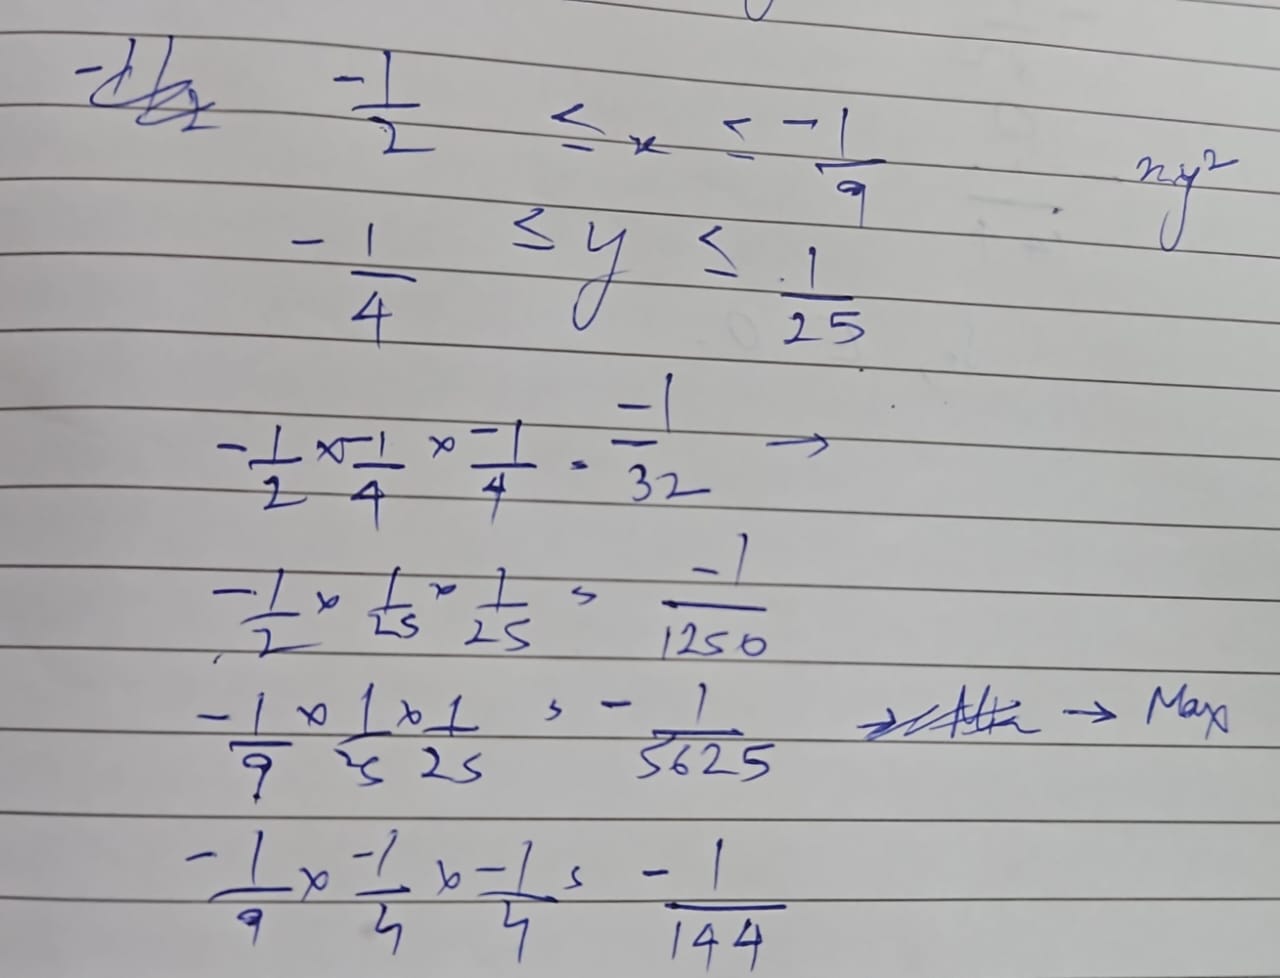 -1/2 ≤ x ≤ -1/9 xy²
-1/4 ≤ y ≤ 1/25
-1/2 × -1/4 × -1/4 = -1/32 →
-1/2 × 1/25 × 1/25 = -1/1250
-1/9 × 1/25 × 1/25 = -1/5625 → Max
-1/9 × -1/4 × -1/4 = -1/144